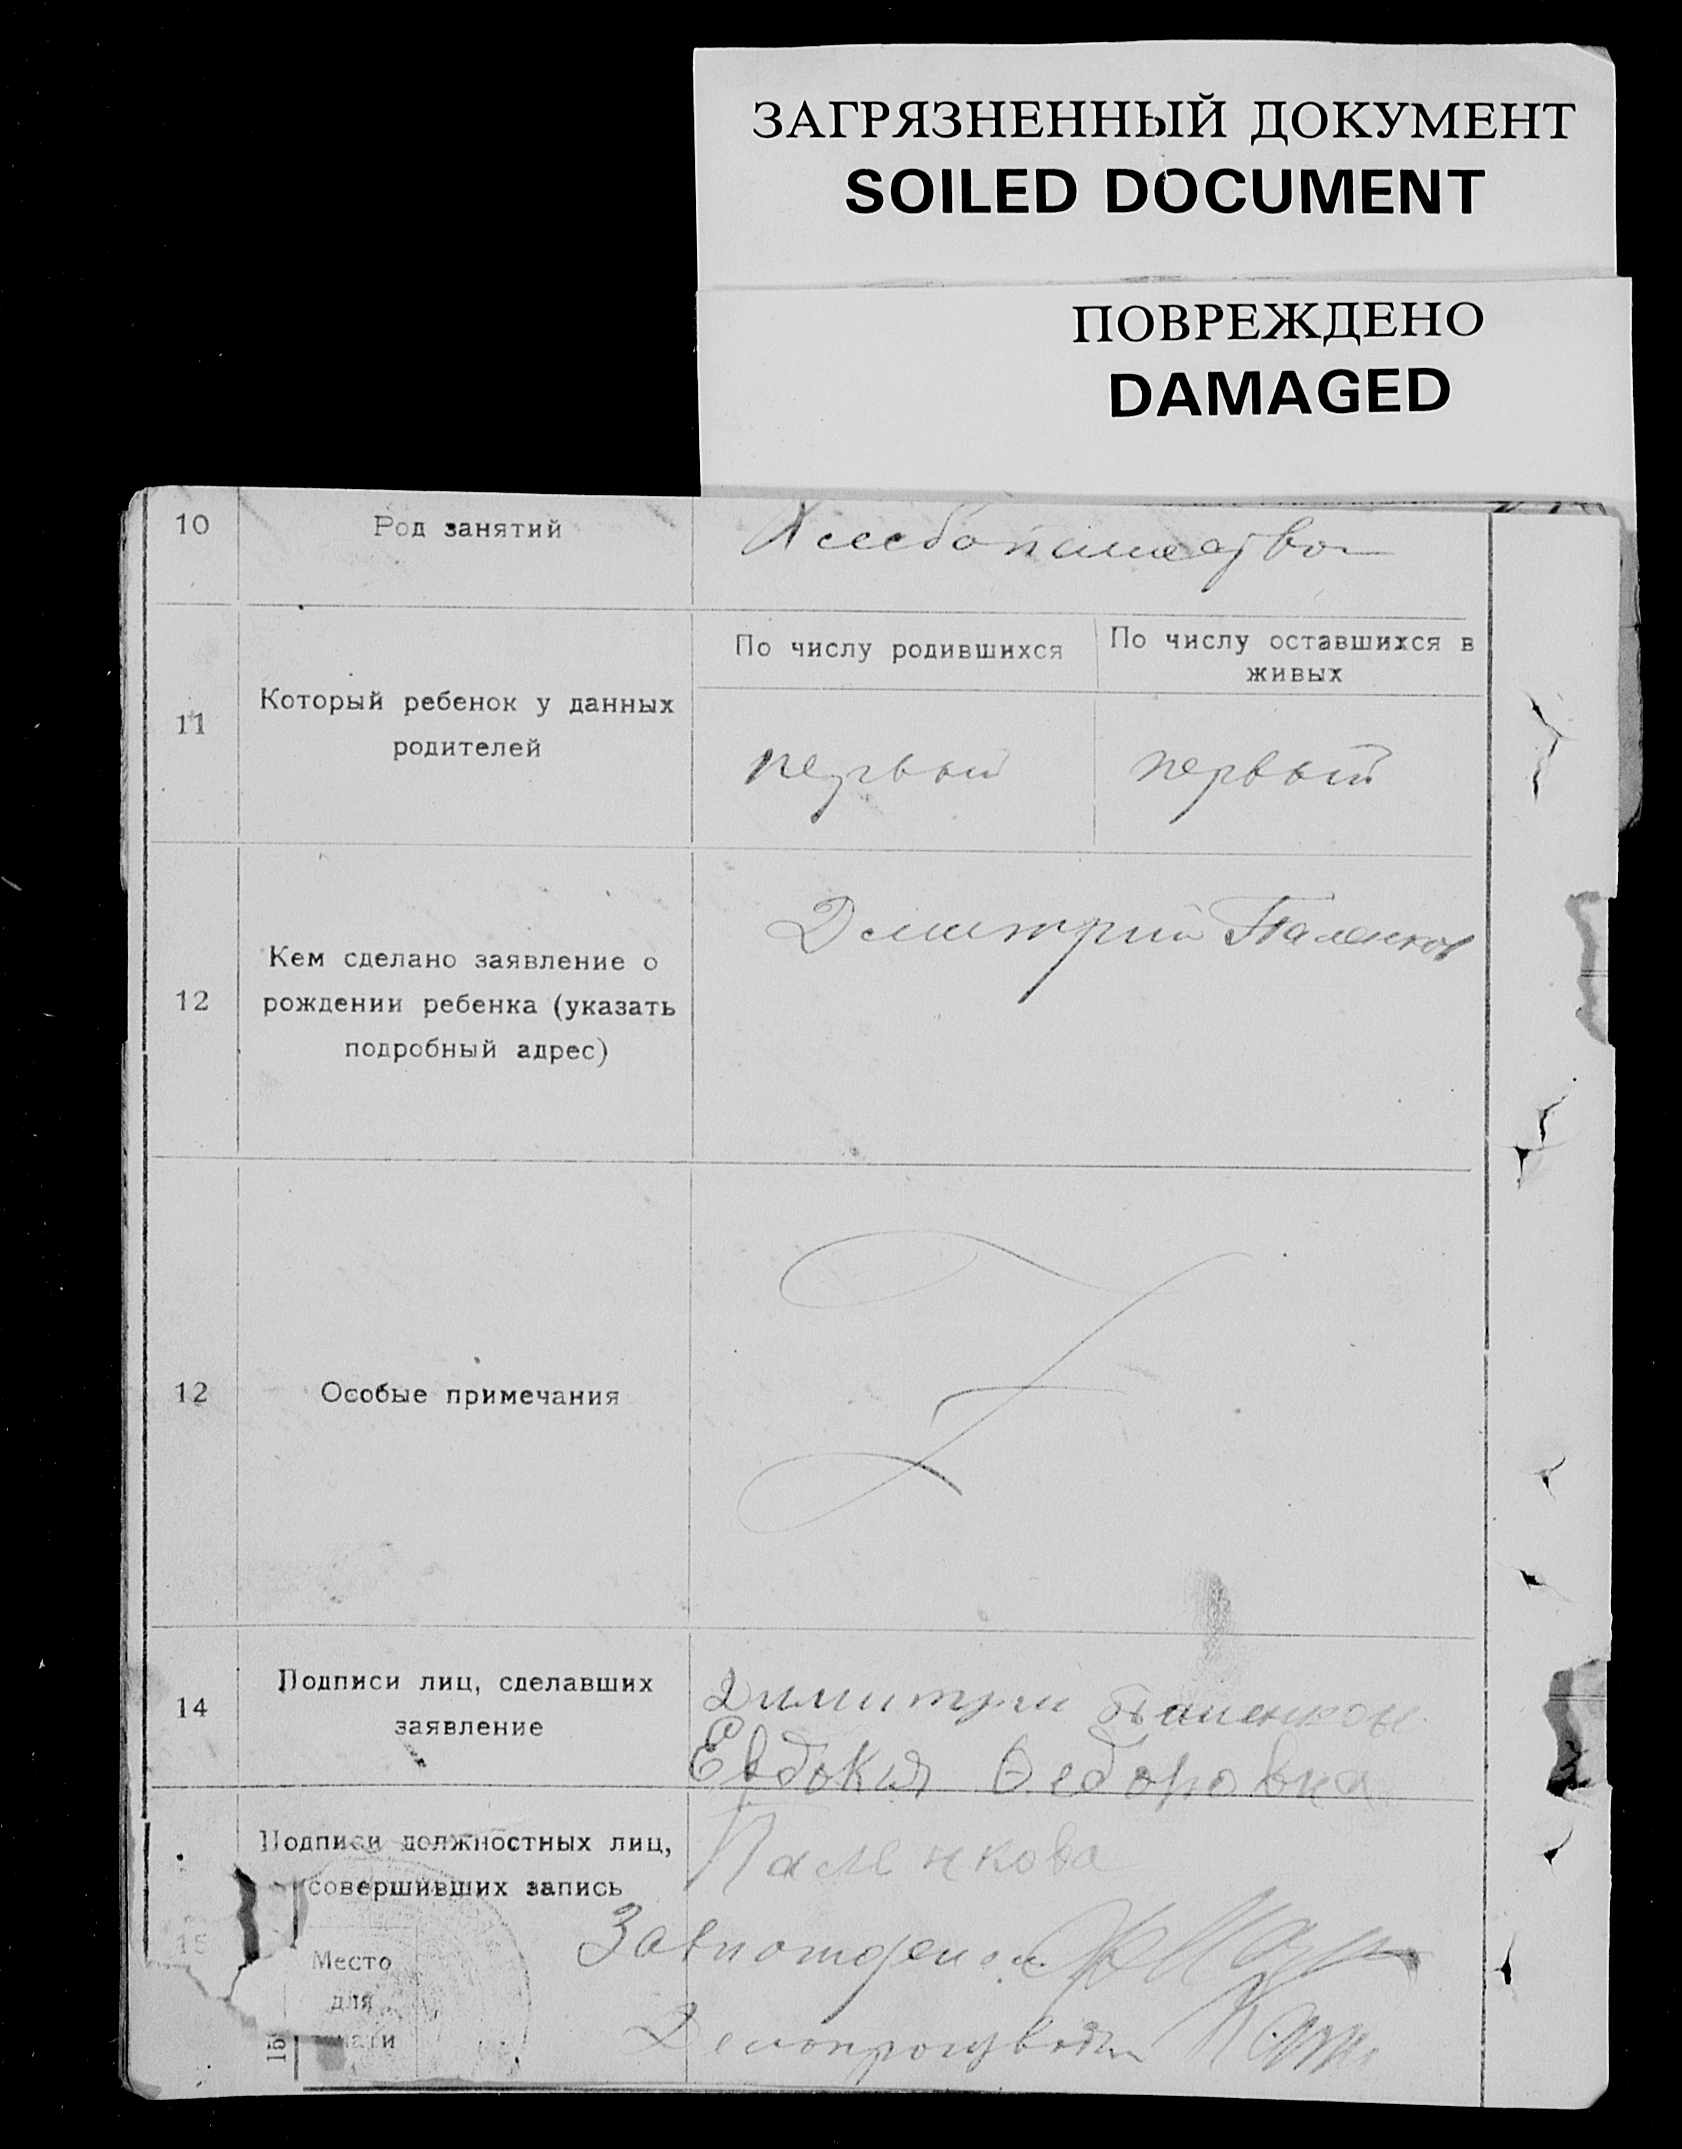 ЗАГРЯЗНЕННЫЙ ДОКУМЕНТ
SOILED DOCUMENT
ПОВРЕЖДЕНО
DAMAGED
10
Род занятий
Хлебопашество
11
Который ребенок у данных
родителей
По числу родившихся
По числу оставшихся в
живых
первый
первый
12
Кем сделано заявление о
рождении ребенка (указать
подробный адрес)
Дмитрий Паленков
12
Особые примечания
14
Подписи лиц, сделавших
заявление
Димитрий Паленков
Евдокия Федоровна
Паленкова
15
Подписи должностных лиц,
совершивших запись
Место
для
Делопроизвод